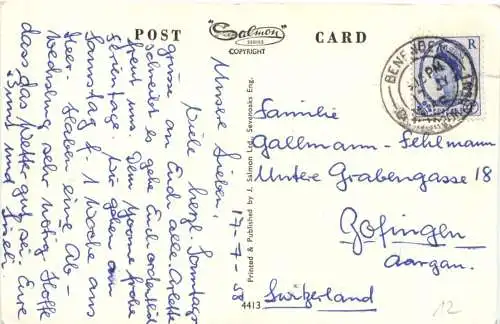 POST
Salmon
SERIES
COPYRIGHT
CARD
BENENDEN
R
17-7-58
Unsere Lieben,
Viele herzl. Sonntags-
grüsse an Euch alle. Arlette
schreibt es gehe Euch ordentlich
freut uns. Dem Yvonne frohe
Ferientage. Wir gehen am
Samstag f. 1 Woche ans
Meer. Haben eine Ab-
wechslung sehr nötig. Hoffe
dass das Wetter gut sei. Eure
und
Printed & Published by J. Salmon Ltd., Sevenoaks Eng.
4413
Familie
Gallmann-Fehlmann
Untere Grabengasse 18
Zofingen
Aargau.
Switzerland
12